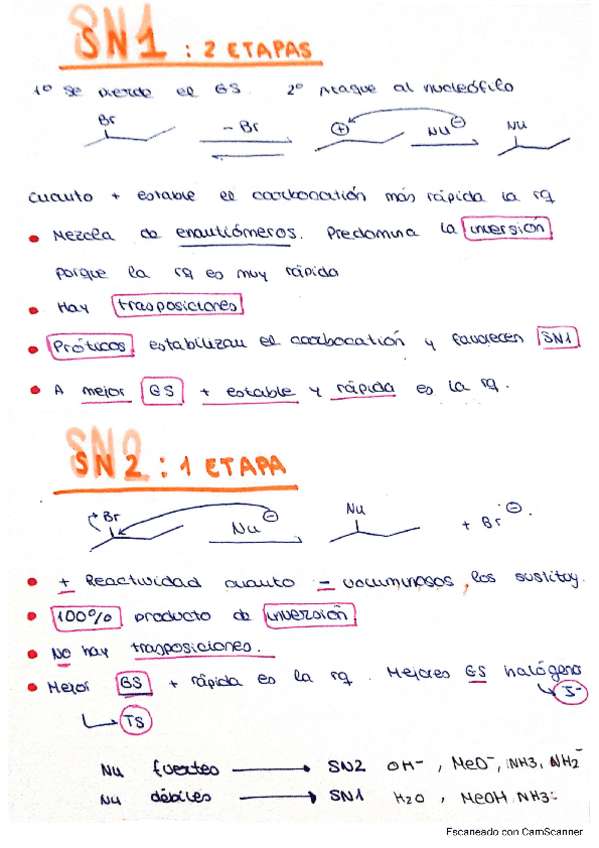 SN1
SN1 : 2 ETAPAS
1º Se pierde el GS. 2º Ataque al nucleófilo
Br - Br + Nu - Nu
Cuanto + estable el carbocatión más rápida la rq
• Mezcla de enantiómeros. Predomina la inversión
porque la rq es muy rápida
• Hay trasposiciones
• Próticos estabilizan el carbocatión y favorecen SN1
• A mejor GS + estable y rápida es la rq.
SN2
SN2 : 1 ETAPA
Br Nu - Nu + Br -.
• + Reactividad cuanto - voluminosos los sustituy.
• 100% producto de inversión
• No hay trasposiciones.
• Mejor GS + rápida es la rq. Mejores GS halógeno
I-
TS
Nu fuertes → SN2 OH-, MeO-, NH3, NH2-
Nu débiles → SN1 H2O, MeOH, NH3
Escaneado con CamScanner